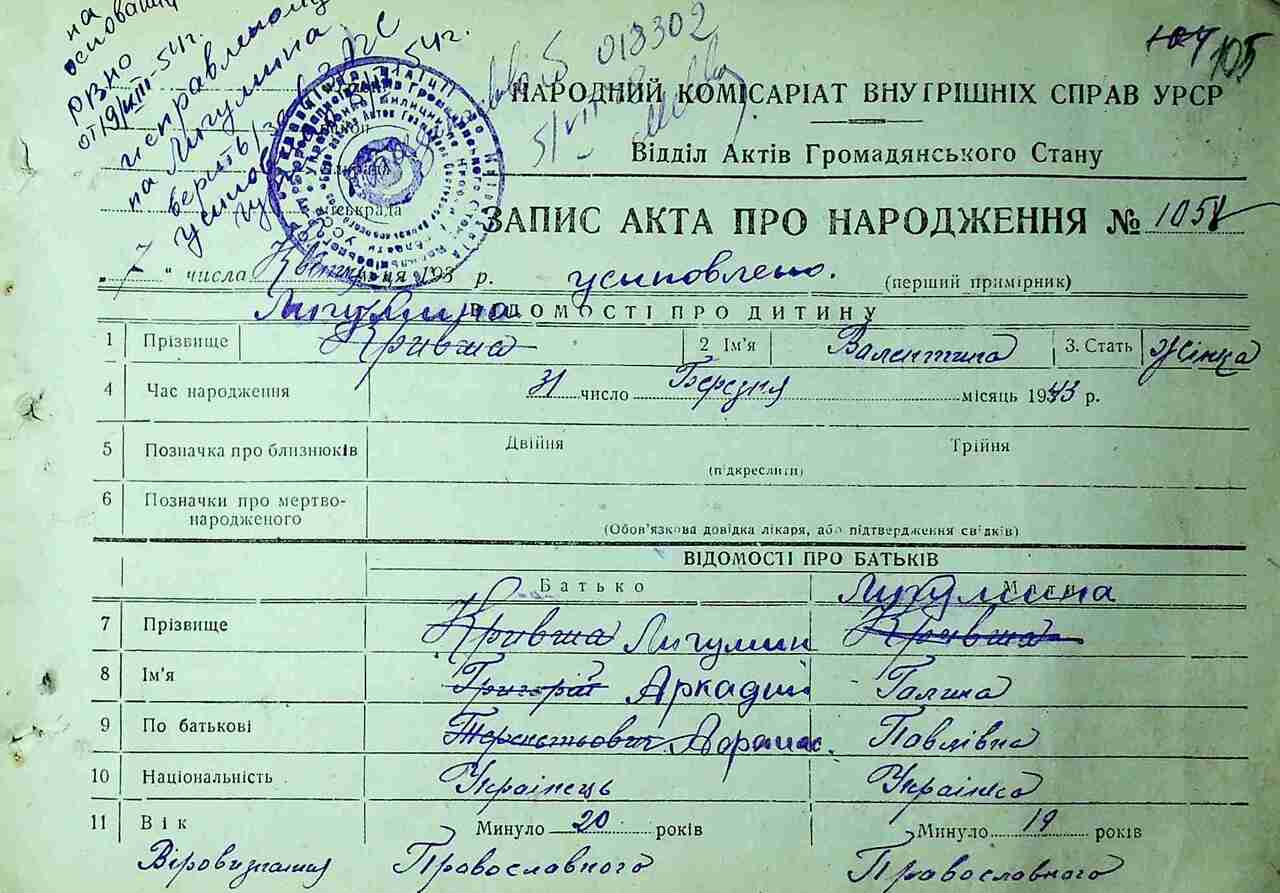 на
основании
РВНО
от 19/VIII-54г.
исправленому
на Лигумина
54г.
018302
5/VII
104 105
НАРОДНИЙ КОМІСАРІАТ ВНУТРІШНІХ СПРАВ УРСР
Відділ Актів Громадянського Стану
міськрада
ЗАПИС АКТА ПРО НАРОДЖЕННЯ № 1051
„ 7 “ числа Квітня місяця 193 р. усиновлено. (перший примірник)
ВІДОМОСТІ ПРО ДИТИНУ
Лигумина
1 Прізвище Кривша 2 Ім'я Валентина 3. Стать Жінка
4 Час народження 31 число Березня місяць 1943 р.
5 Позначка про близнюків Двійня Трійня
(підкреслити)
6 Позначки про мертво-
народженого
(Обов'язкова довідка лікаря, або підтвердження свідків)
ВІДОМОСТІ ПРО БАТЬКІВ
Батько Мати Лигумина
7 Прізвище Кривша Лигумин Кривша
8 Ім'я Григорій Аркадий Галина
9 По батькові Терентьович Павлівна
10 Національність Українець Українка
11 Вік Минуло 20 років Минуло 19 років
Віровизнання Православного Православного